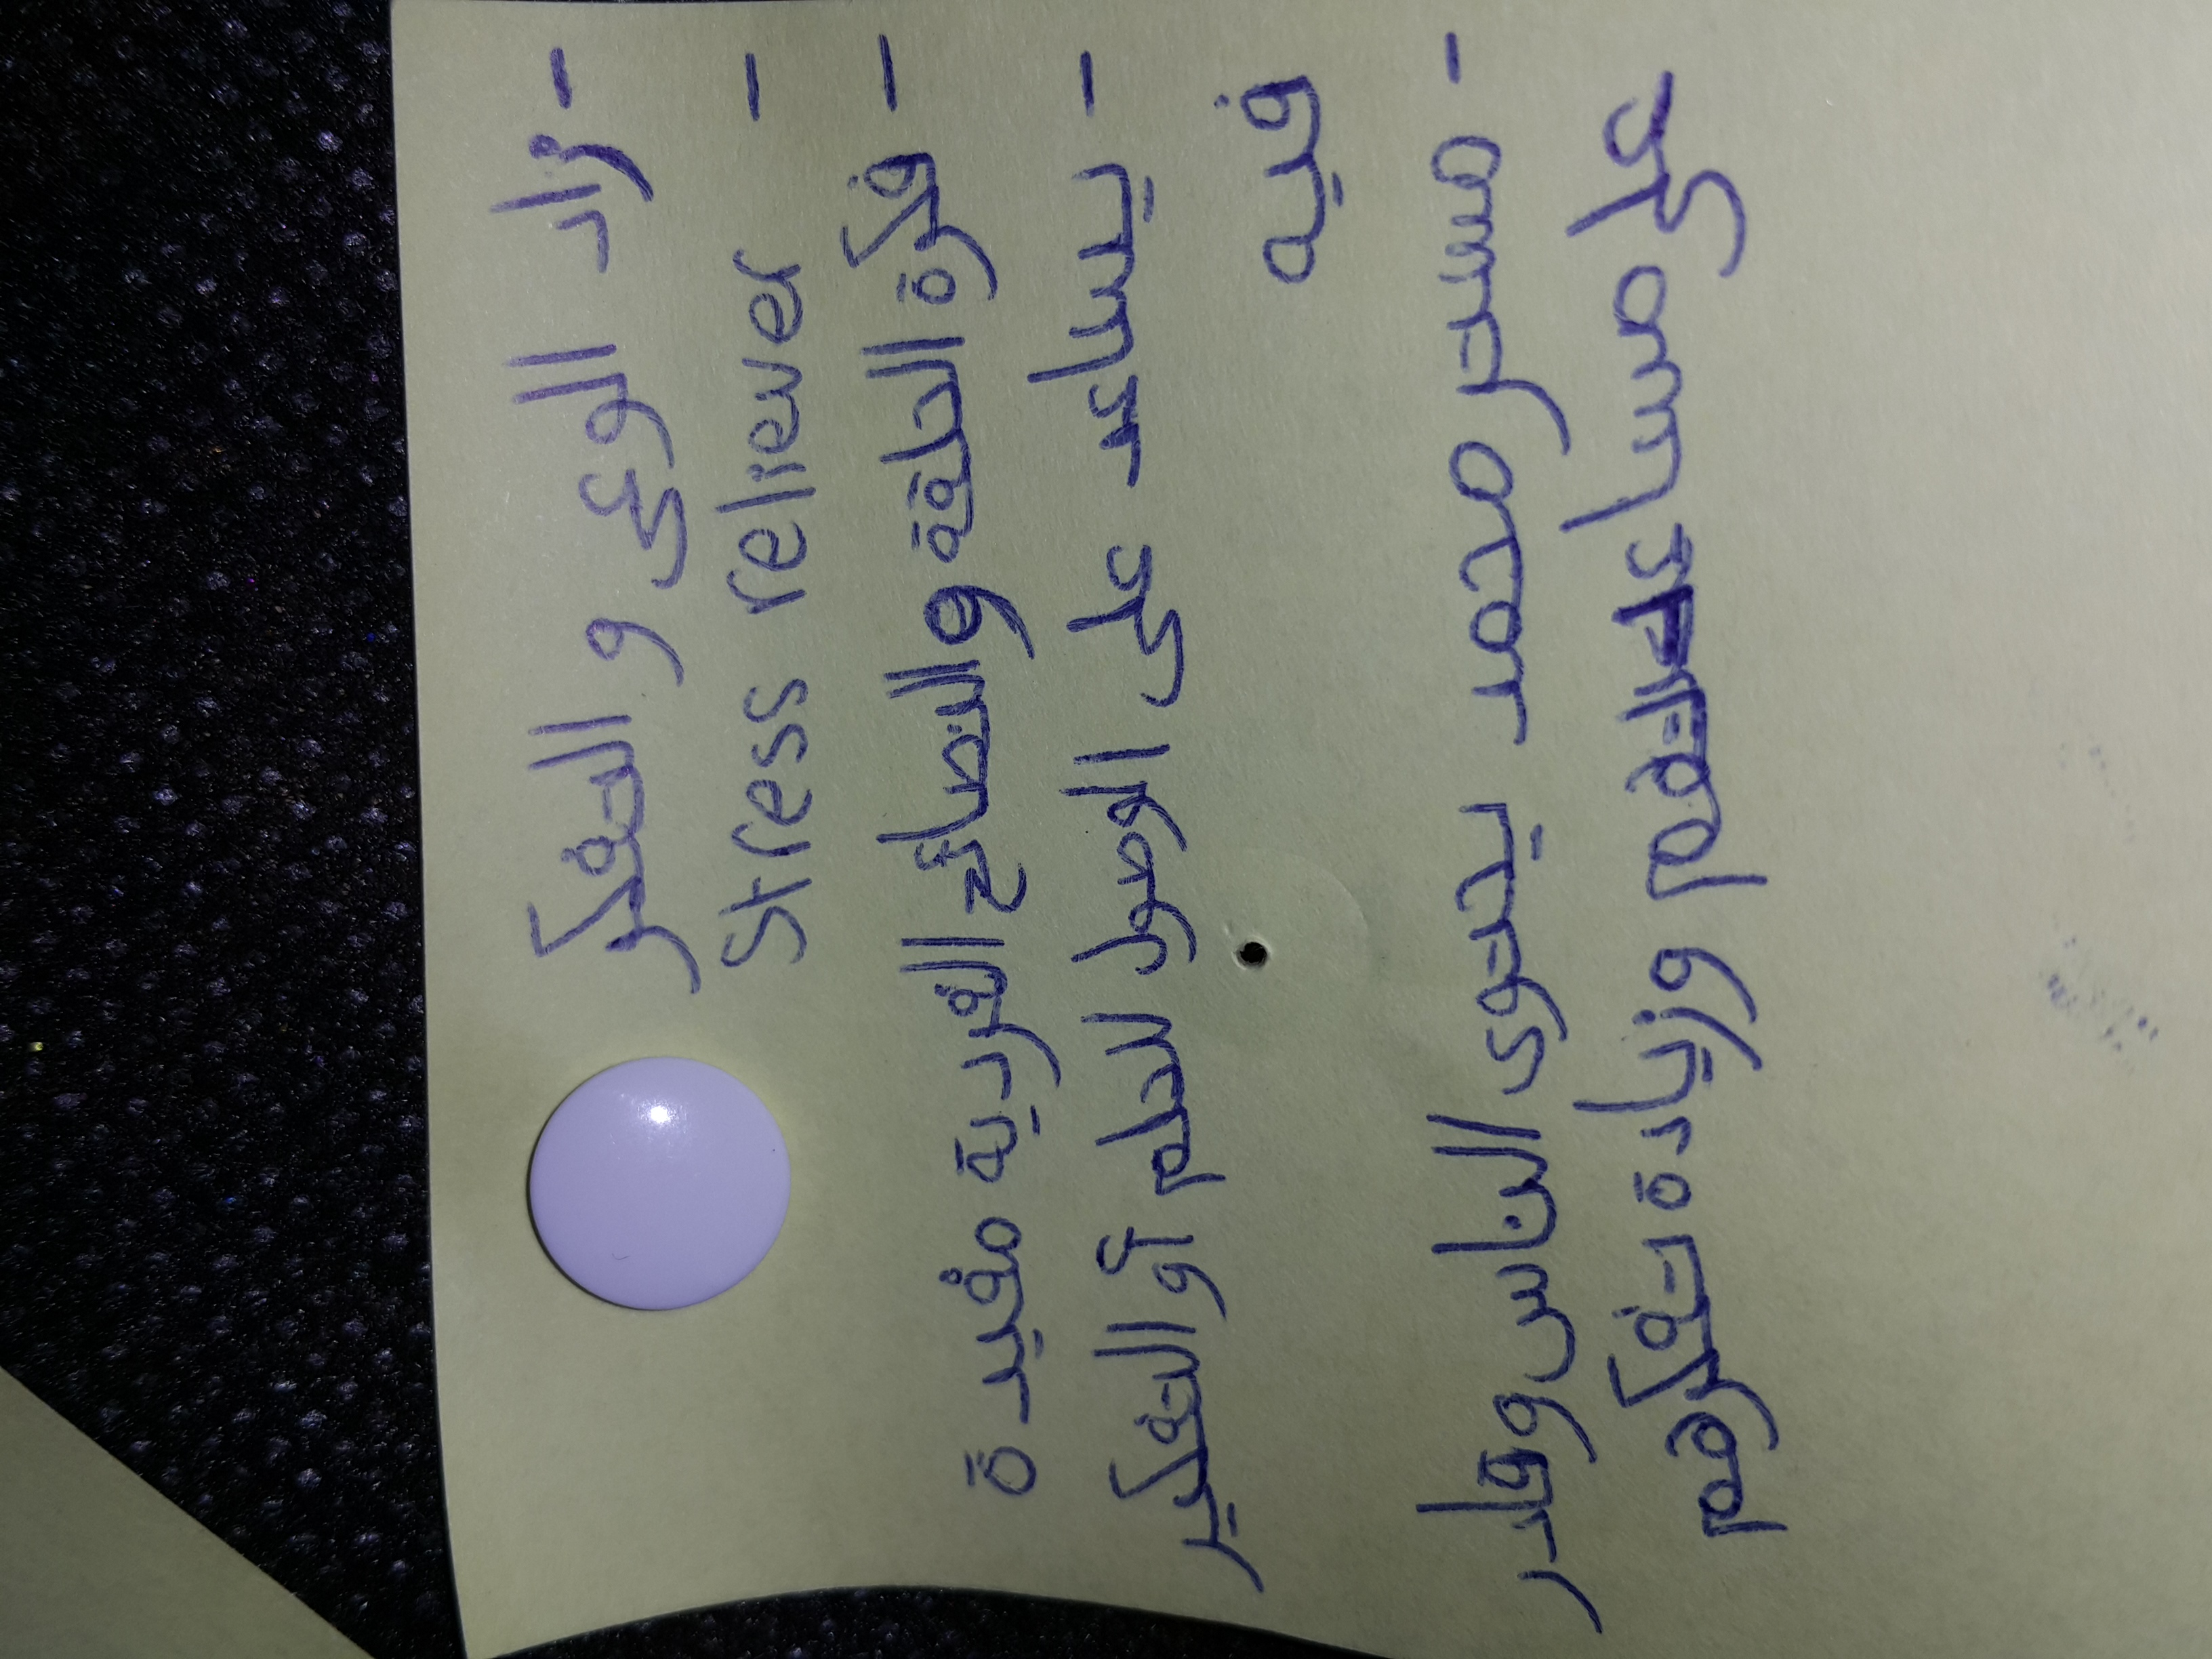 - زاد الوعى و التفكر
- Stress reliever
- فكرة الحلقة والنصائح الفردية مفيدة
- يساعد على الوصول للحلم أو التفكير
فيه
- مستر محمد يحتوى الناس وقادر
على مساعدتهم وزيادة تفكرهم